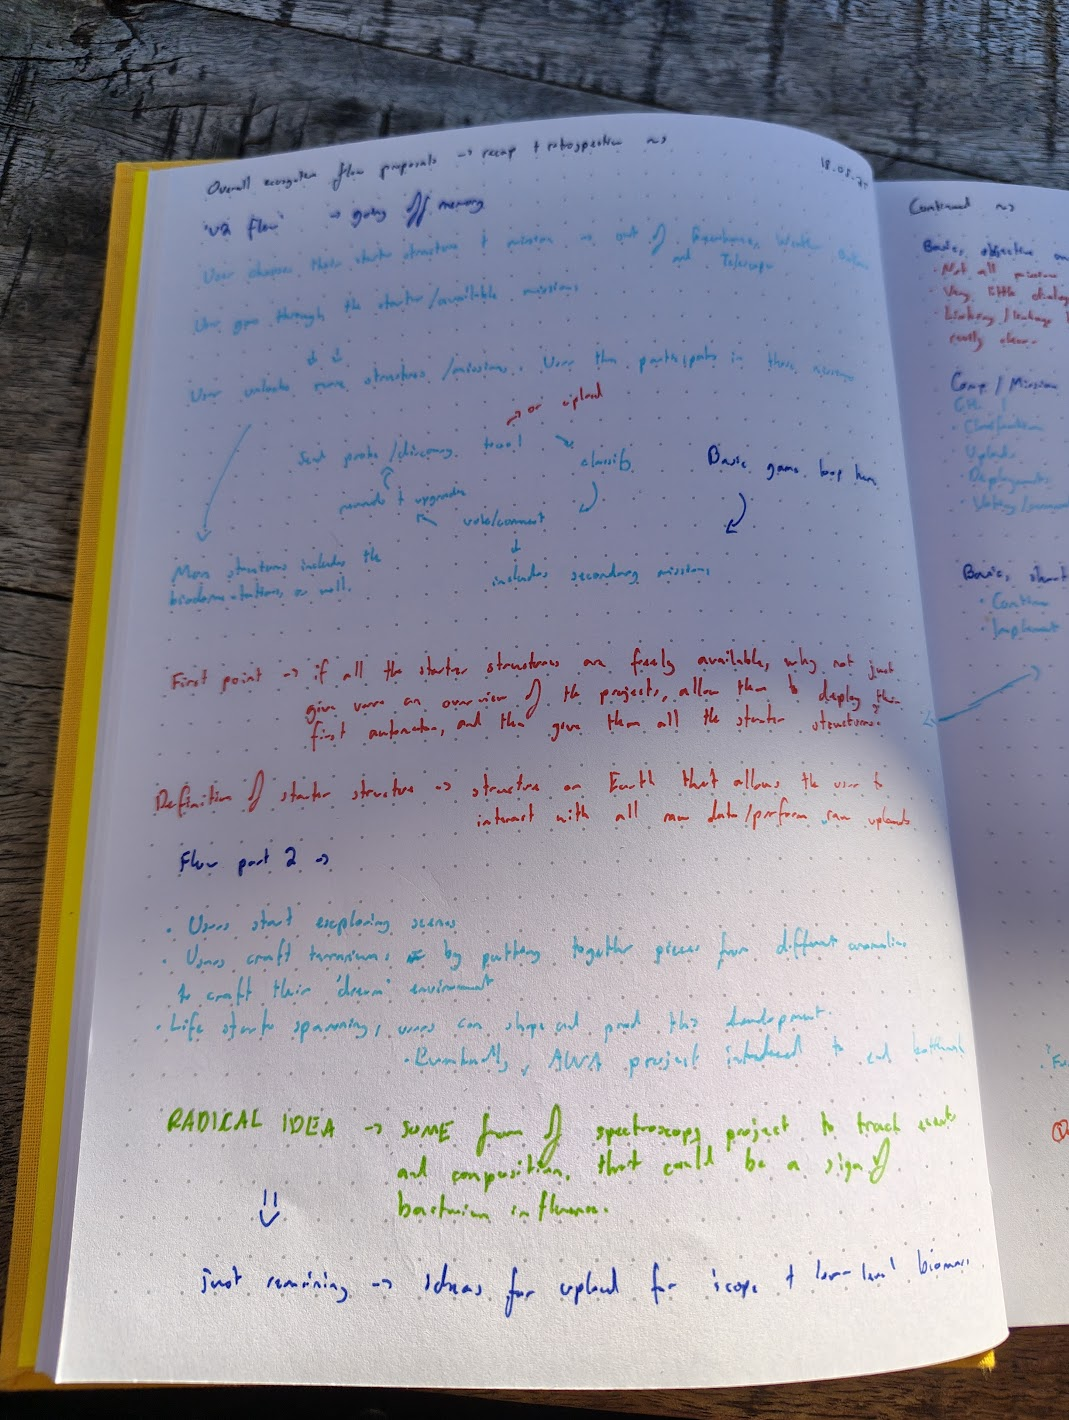 Overall ecosystem flow proposals → recap + retrospective ~>
18.05.
'v2 flow' → going off memory
User chooses their starter structure + mission → out of Greenhouse, Weather Balloon
and Telescope
User goes through the starter/available missions
↓ ↓
User unlocks more structures/missions. User then participates in these missions
→ or upload
Send probe/discovery tool
classify
rewards + upgrades
vote/comment
Basic game loop here
includes secondary missions
More structures includes the
biodomestations as well.
First point → if all the starter structures are freely available, why not just
give users an overview of the projects, allow them to deploy their
first automaton, and then give them all the starter structures?
Definition of starter structure → structure on Earth that allows the user to
interact with all raw data/perform raw uploads
Flow part 2 →
• Users start exploring scenes
• Users craft terrariums by putting together pieces from different anomalies
to craft their 'dream' environment
• Life starts spawning, users can shape and prod this development.
• Eventually, AWA project introduced to end
RADICAL IDEA → SOME form of spectroscopy project to track events
and composition, that could be a sign of
bacterium influence.
just remaining → ideas for upload for 'scope + lower-level biomass
Continued ~>
Basic, objective
• Not all mission
• Very little dialog
• Linking/linkage
really clear
Comp / Mission
• Classification
• Uploads
• Deployments
• Voting/
Basic, short
• Continue
• Implement